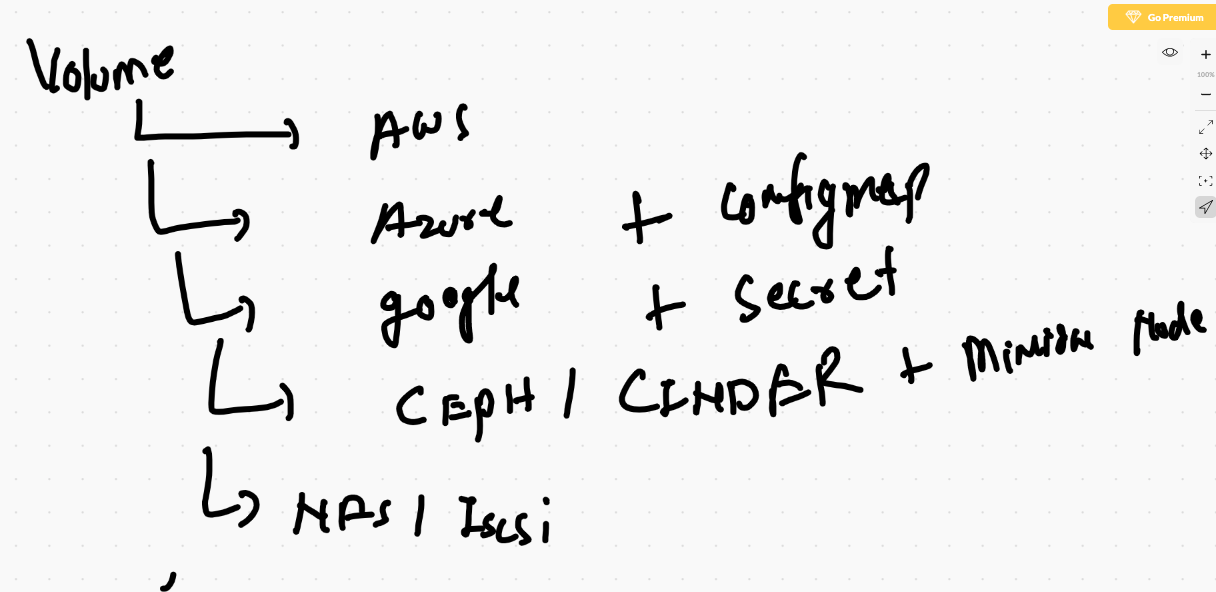 Go Premium
100%
Volume
AWS
Azure + configmap
google + secret
CEPH / CINDER + Minion Node
NFS / Iscsi